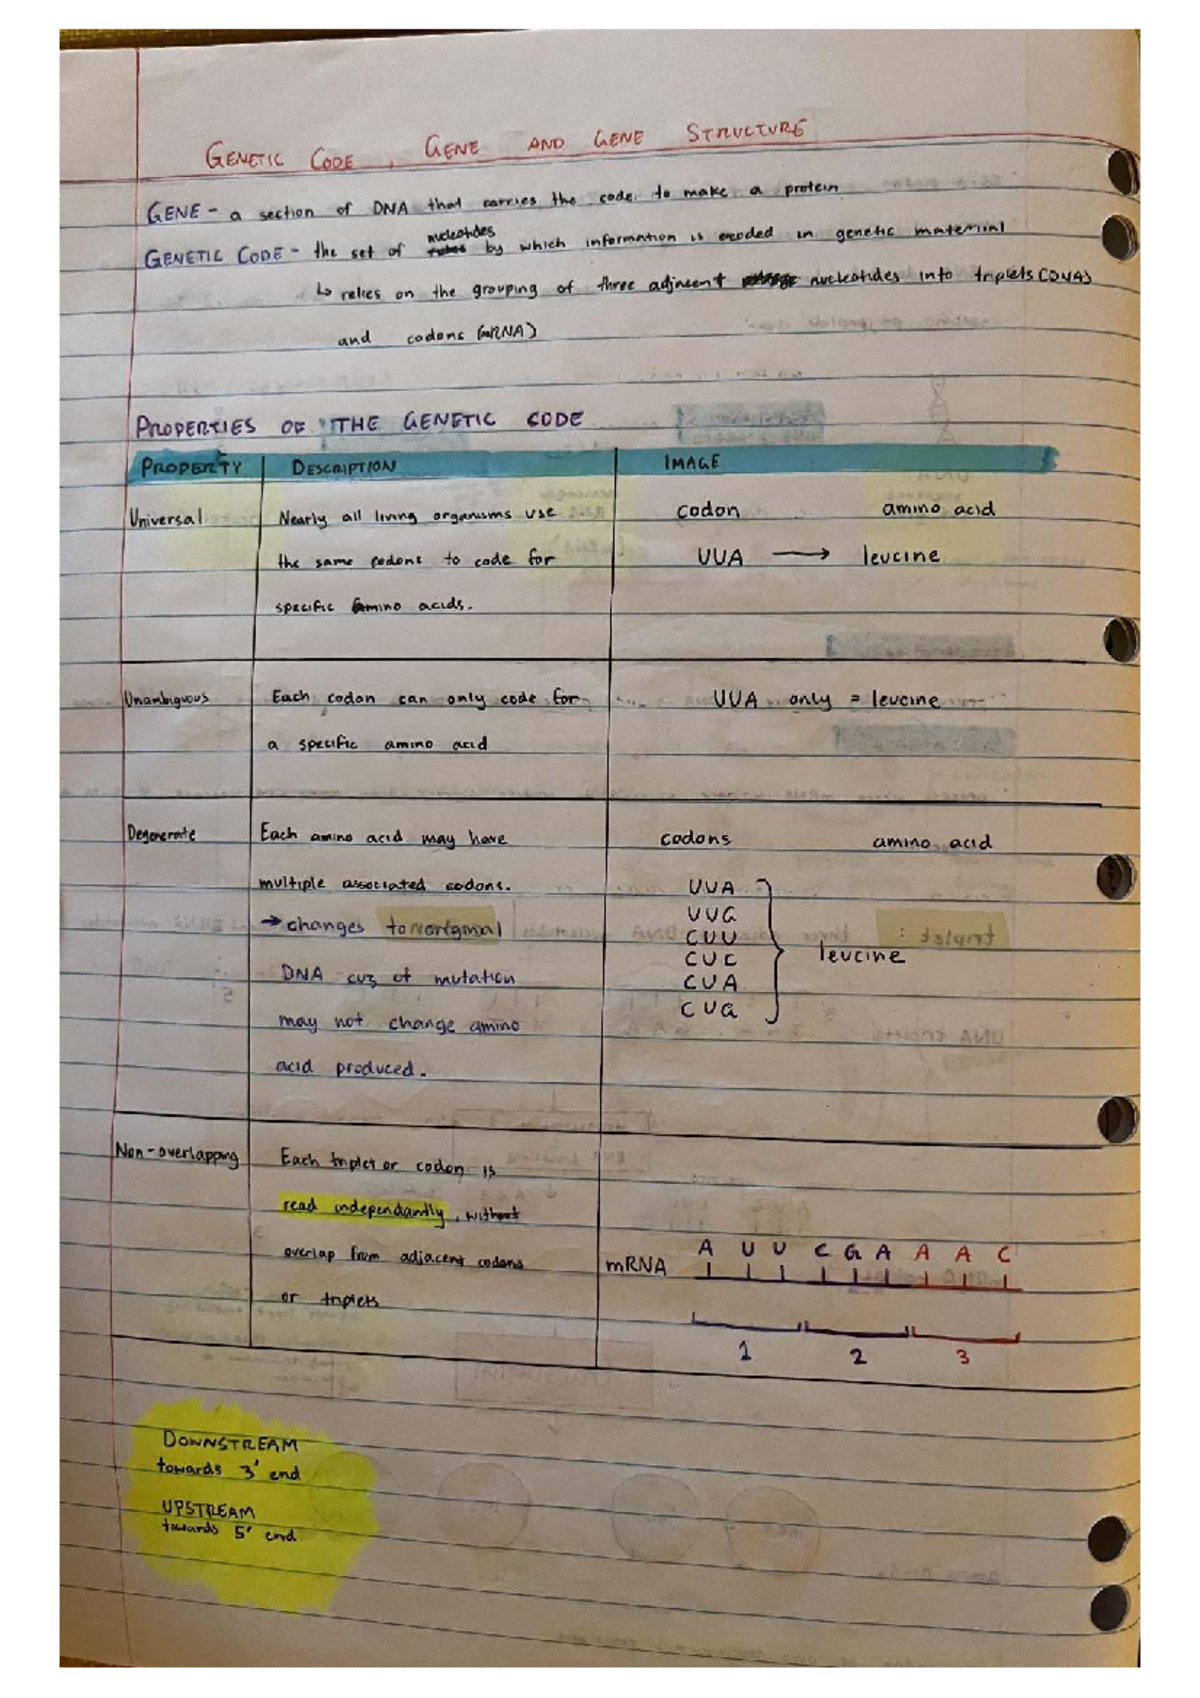 GENETIC CODE, GENE AND GENE STRUCTURE
GENE - a section of DNA that carries the code to make a protein
nucleotides
GENETIC CODE - the set of by which information is encoded in genetic material
↳ relies on the grouping of three adjacent nucleotides into triplets (DNA)
and codons (mRNA)
PROPERTIES OF THE GENETIC CODE
PROPERTY DESCRIPTION IMAGE
Universal Nearly all living organisms use codon amino acid
the same codons to code for UUA → leucine
specific amino acids.
Unambiguous Each codon can only code for UUA only = leucine
a specific amino acid
Degenerate Each amino acid may have codons amino acid
multiple associated codons. UUA
→ changes to original UUG
CUU
CUC leucine
DNA cuz of mutation CUA
may not change amino CUG
acid produced.
Non-overlapping Each triplet or codon is
read independantly, without
overlap from adjacent codons mRNA A U U C G A A A C
or triplets
1 2 3
DOWNSTREAM
towards 3' end
UPSTREAM
towards 5' end